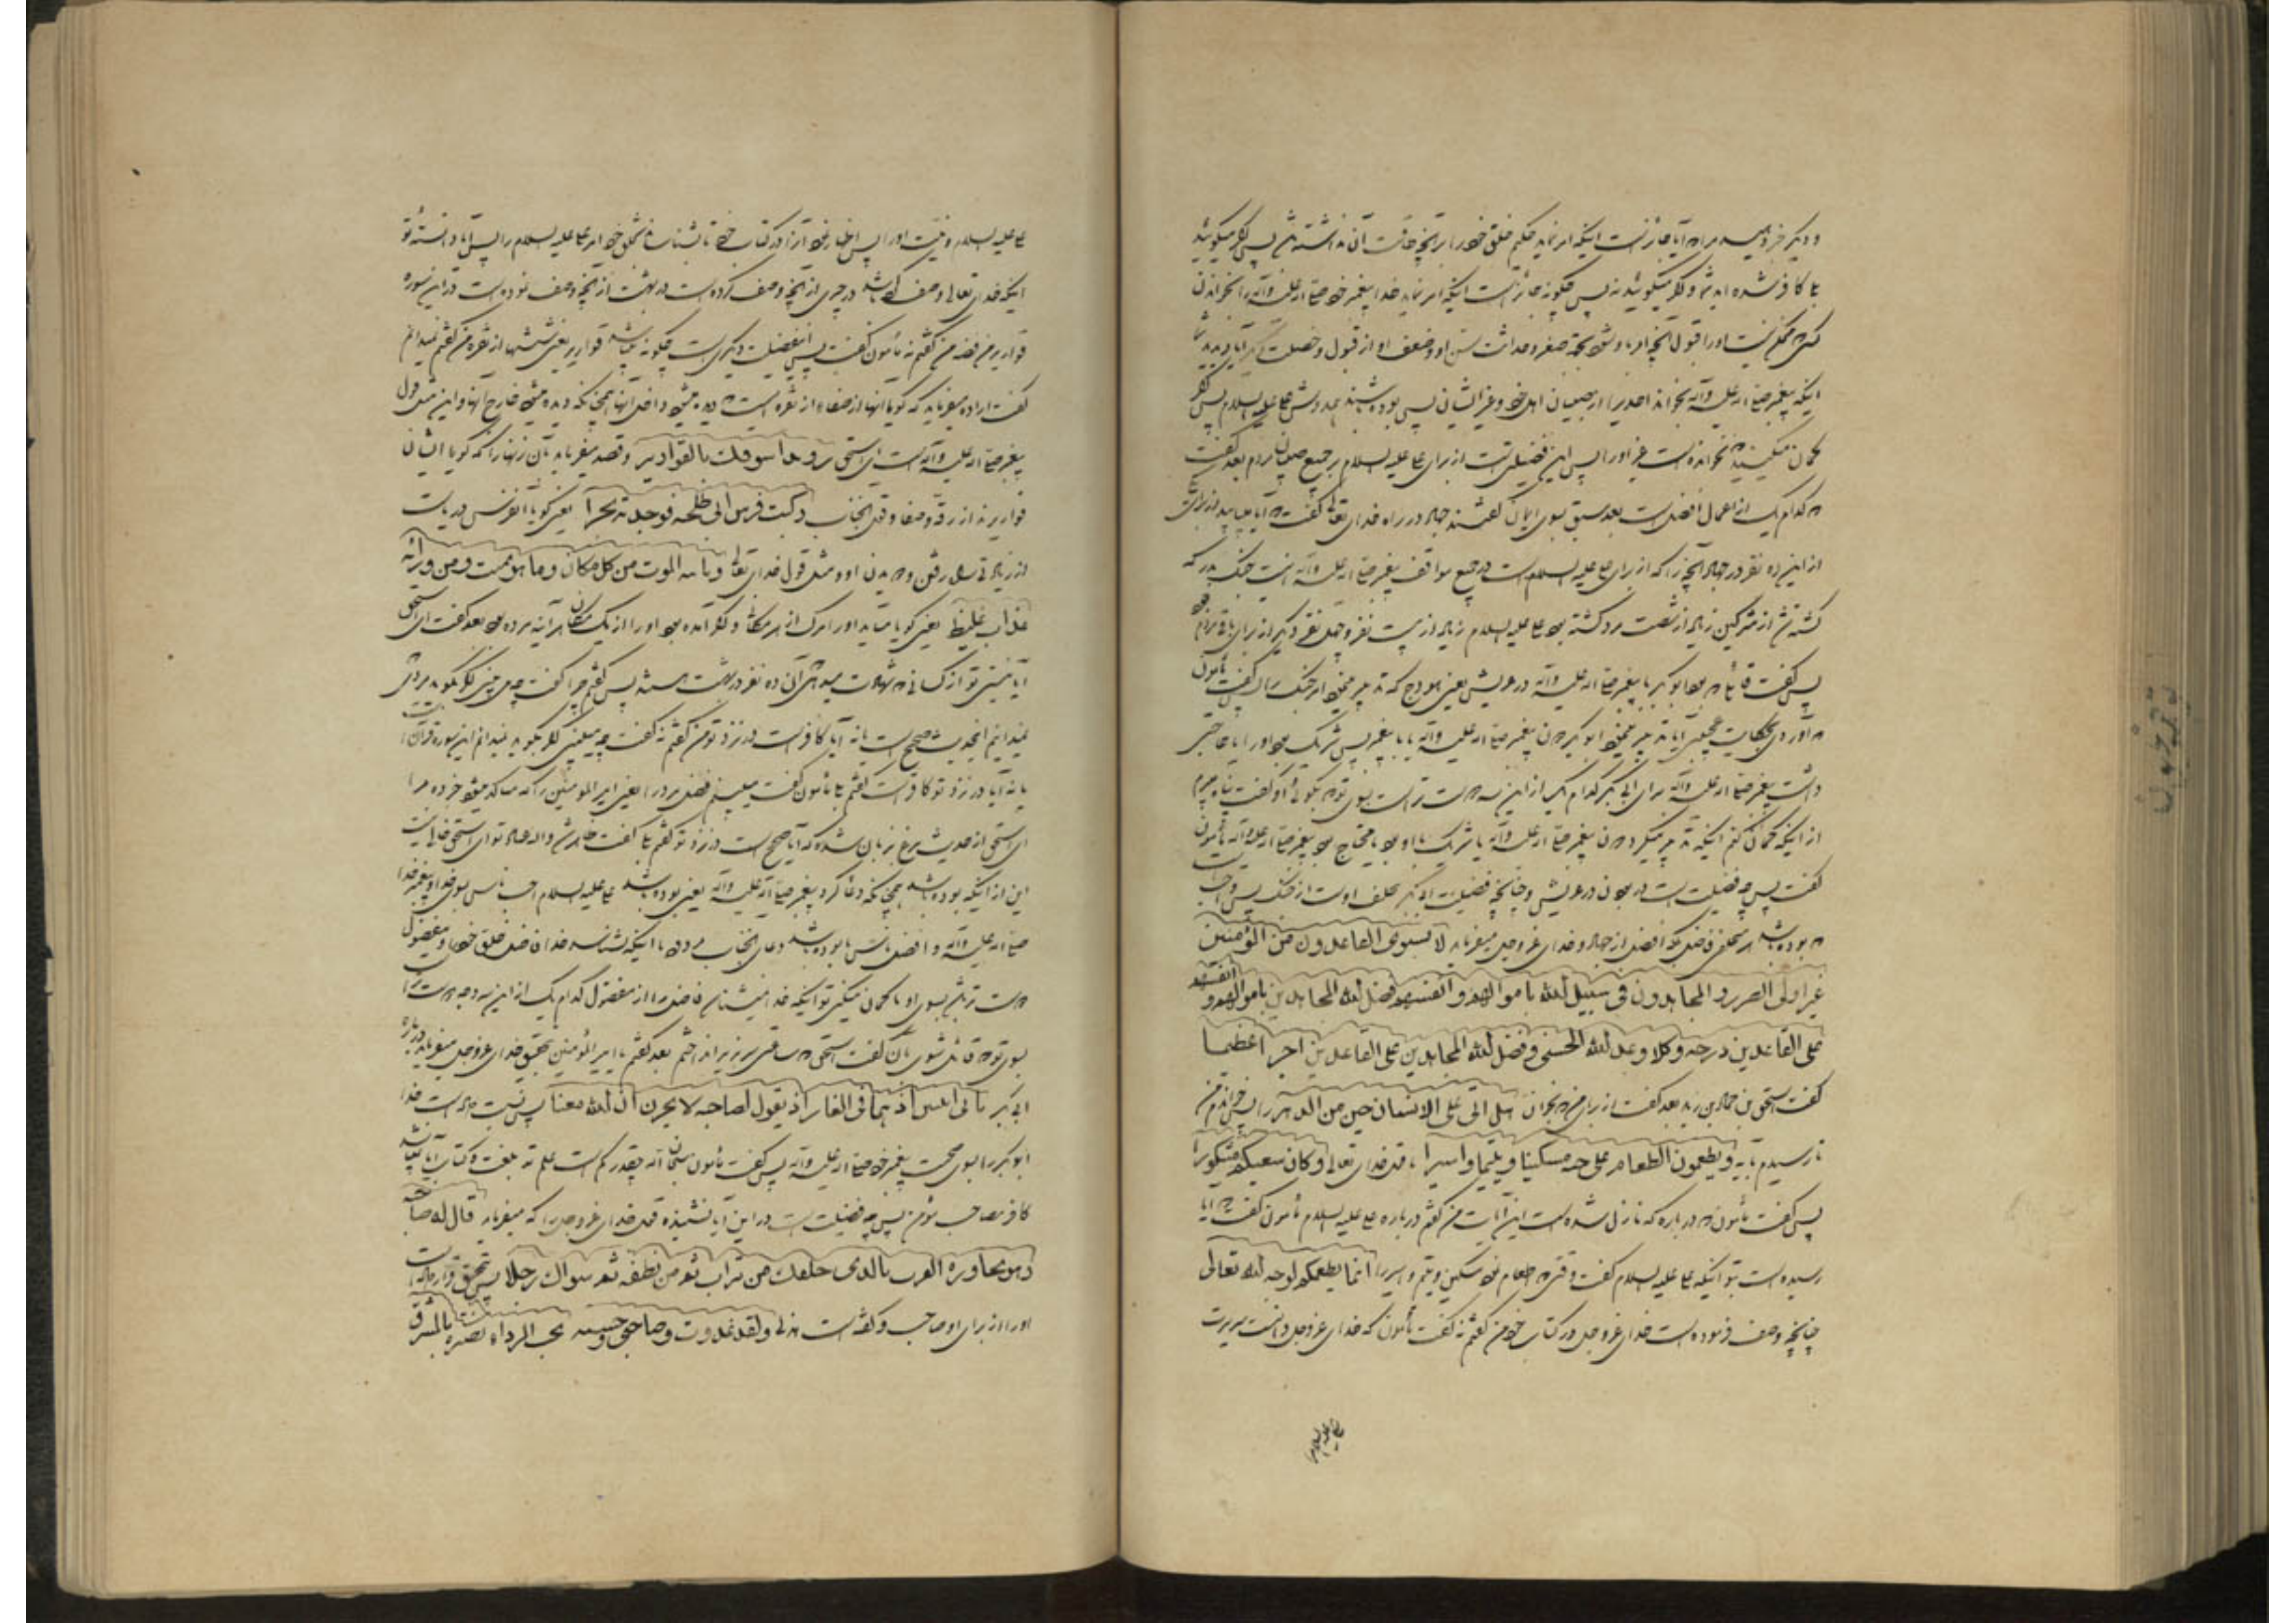 و دیگر خبر دهید مرا که آیا جایز است اینکه امر نماید حکیم خلق خود را بر آنچه طاقت آن نداشته باشند پس اگر میگوئید
بلی کافر شده اید و اگر میگوئید نه پس چگونه جائز است اینکه امر نماید خدا پیغمبر خود صلی الله علیه وآله را بخواندن
کسی که ممکن نیست او را قبول آنچه امر باو شود بجهة صغر و حداثت سن او و ضعف او از قبول و خصلت دیگر آیا دیده اید شما
اینکه پیغمبر صلی الله علیه وآله بخواند احدی را از صبیان اهل خود و غیر ایشان پس بوده باشند همدوش علی علیه السلام پس اگر
گمان میکنید که نخوانده است غیر او را پس این فضیلتی است از برای علی علیه السلام بر جمیع صبیان مردم بعد گفت
که کدام یک از اعمال افضل است بعد سبق بسوی ایمان گفتند جهاد در راه خدای تعالی گفت که آیا مییابید از برای یکی
از این ده نفر در جهاد آنچه را که از برای علی علیه السلام است در جمیع مواقف پیغمبر صلی الله علیه وآله اینست جنگ بدر که
کشته شد از مشرکین زیاد از شصت مرد کشته بود علی علیه السلام زیاد از بیست نفر و چهل نفر دیگر از برای باقی مردم بود
پس گفت قائلی که بود ابو بکر با پیغمبر صلی الله علیه وآله در عریش یعنی هودج که تدبیر مینمود امر جنگ را پس گفت مأمون
که آوردی حکایت عجیبی آیا تدبیر مینمود ابو بکر بدون پیغمبر صلی الله علیه وآله یا با پیغمبر پس شریک بود او را یا حاجتی
داشت پیغمبر صلی الله علیه وآله برای ابی بکر کدام یک از این سه دوست تر است بسوی تو که بگوئی او گفت پناه میبرم
از اینکه گمان کنم اینکه تدبیر میکرد بدون پیغمبر صلی الله علیه وآله یا شریک با او بود یا محتاج بود پیغمبر صلی الله علیه وآله مأمون
گفت پس چه فضیلت است در بودن در عریش و چنانچه فضیلت ابی بکر تخلف او است از جنگ پس واجب است
که بوده باشد هر متخلفی فاضل بلکه افضل از جهاد و خدای عزوجل میفرماید لا یستوی القاعدون من المؤمنین
غیر اولی الضرر و المجاهدون فی سبیل الله باموالهم و انفسهم فضل الله المجاهدین باموالهم و انفسهم
علی القاعدین درجه و کلا وعد الله الحسنی و فضل الله المجاهدین علی القاعدین اجرا عظیما
گفت اسحق بن حماد بن زید بعد گفت از برای من که بخوان هل اتی علی الانسان حین من الدهر را پس خواندم من
تا رسیدم بآیه و یطعمون الطعام علی حبه مسکینا و یتیما و اسیرا تا قول خدای تعالی و کان سعیکم مشکورا
پس گفت مأمون که درباره که نازل شده است این آیات من گفتم درباره علی علیه السلام مأمون گفت که آیا
رسیده است بتو اینکه علی علیه السلام گفت وقتی که اطعام نمود مسکین و یتیم و اسیر را انما نطعمکم لوجه الله تعالی
چنانچه وصف فرموده است خدای عزوجل در کتاب خود من گفتم نه گفت مأمون که خدای عزوجل دانست سریرت
علی علیه السلام
علی علیه السلام و نیت او را پس اظهار نمود آنرا در کتاب خود تا بشناساند بخلق خود امر علی علیه السلام را پس آیا دانسته تو
اینکه خدای تعالی وصف کرده باشد در چیزی از آنچه وصف کرده است در بهشت از آنچه وصف نموده است در این سوره
قواریر من فضه من گفتم نه مأمون گفت پس این فضیلت دیگری است چگونه میباشد قواریر یعنی شیشها از نقره من گفتم نمیدانم
گفت اراده میفرماید که گویا آنها از صفاء از نقره است که دیده میشود داخل آنها همچنانکه دیده میشود خارج آنها و این مثل قول
پیغمبر صلی الله علیه وآله است ای اسحق رویدا سوقک بالقواریر و قصد میفرماید بآن زنها را که گویا ایشان
قواریرند از رقت و صفا و قول آنجناب رکبت فرس ابی طلحه فوجدته بحرا یعنی گویا آن فرس دریاست
از زیادتی سیل رفتن و دویدن او و مثل قول خدای تعالی و یاتیه الموت من کل مکان و ما هو بمیت و من ورائه
عذاب غلیظ یعنی گویا میآید او را مرگ از هر مکان و اگر آمده بود او را از یک مکان هر آینه مرده بود بعد گفت ای اسحق
آیا نیستی تو از کسانی که شهادت میدهی آن ده نفر در بهشت هستند پس گفتم چرا گفت چه می بینی اگر بگوید مردی
نمیدانم این حدیث صحیح است یا نه آیا کافر است در نزد تو من گفتم نه گفت چه میبینی اگر بگوید نمیدانم این سوره قرآن است
یا نه آیا در نزد تو کافر است گفتم بلی مأمون گفت میبینم فضل مرد را یعنی امیر المؤمنین را که متأکد میشود خبر ده مرا
ای اسحق از حدیث مرغ بریان شده که آیا صحیح است در نزد تو گفتم بلی گفت ظاهر شد والله عناد تو ای اسحق خالی نیست
این از اینکه بوده باشد همچنانکه دعا کرد پیغمبر صلی الله علیه وآله یعنی بوده باشد علی علیه السلام احب ناس بسوی خدا و پیغمبر خدا
صلی الله علیه وآله و افضل ناس یا بوده باشد دعای آنجناب مردود یا اینکه شناسد خدا فاضل خلق خود را و مفضول
دوست تر باشد بسوی او یا گمان میکنی تو اینکه خدا نمیشناسد فاضل را از مفضول کدام یک از این سه وجه دوست تر است
بسوی تو که قائل شوی بآن گفت اسحق که ساعتی سر بزیر انداختم بعد گفتم یا امیر المؤمنین بتحقیق خدای عزوجل میفرماید درباره
ابی بکر ثانی اثنین اذ هما فی الغار اذ یقول لصاحبه لا تحزن ان الله معنا پس نسبت داده است خدا
ابو بکر را بسوی صحبت پیغمبر خود صلی الله علیه وآله پس گفت مأمون سبحان الله چقدر کم است علم تو بلغت و کتاب آیا نمیباشد
کافر مصاحب مؤمن پس چه فضیلت است در این آیا نشنیده قول خدای عزوجل را که میفرماید قال له صاحبه
و هو یحاوره اکفرت بالذی خلقک من تراب ثم من نطفه ثم سواک رجلا پس بتحقیق قرار داده است
او را از برای او صاحب و گفته است هذلی ولقد غدوت و صاحبی وحشیه تحت الرداء بصیره بالمشرق